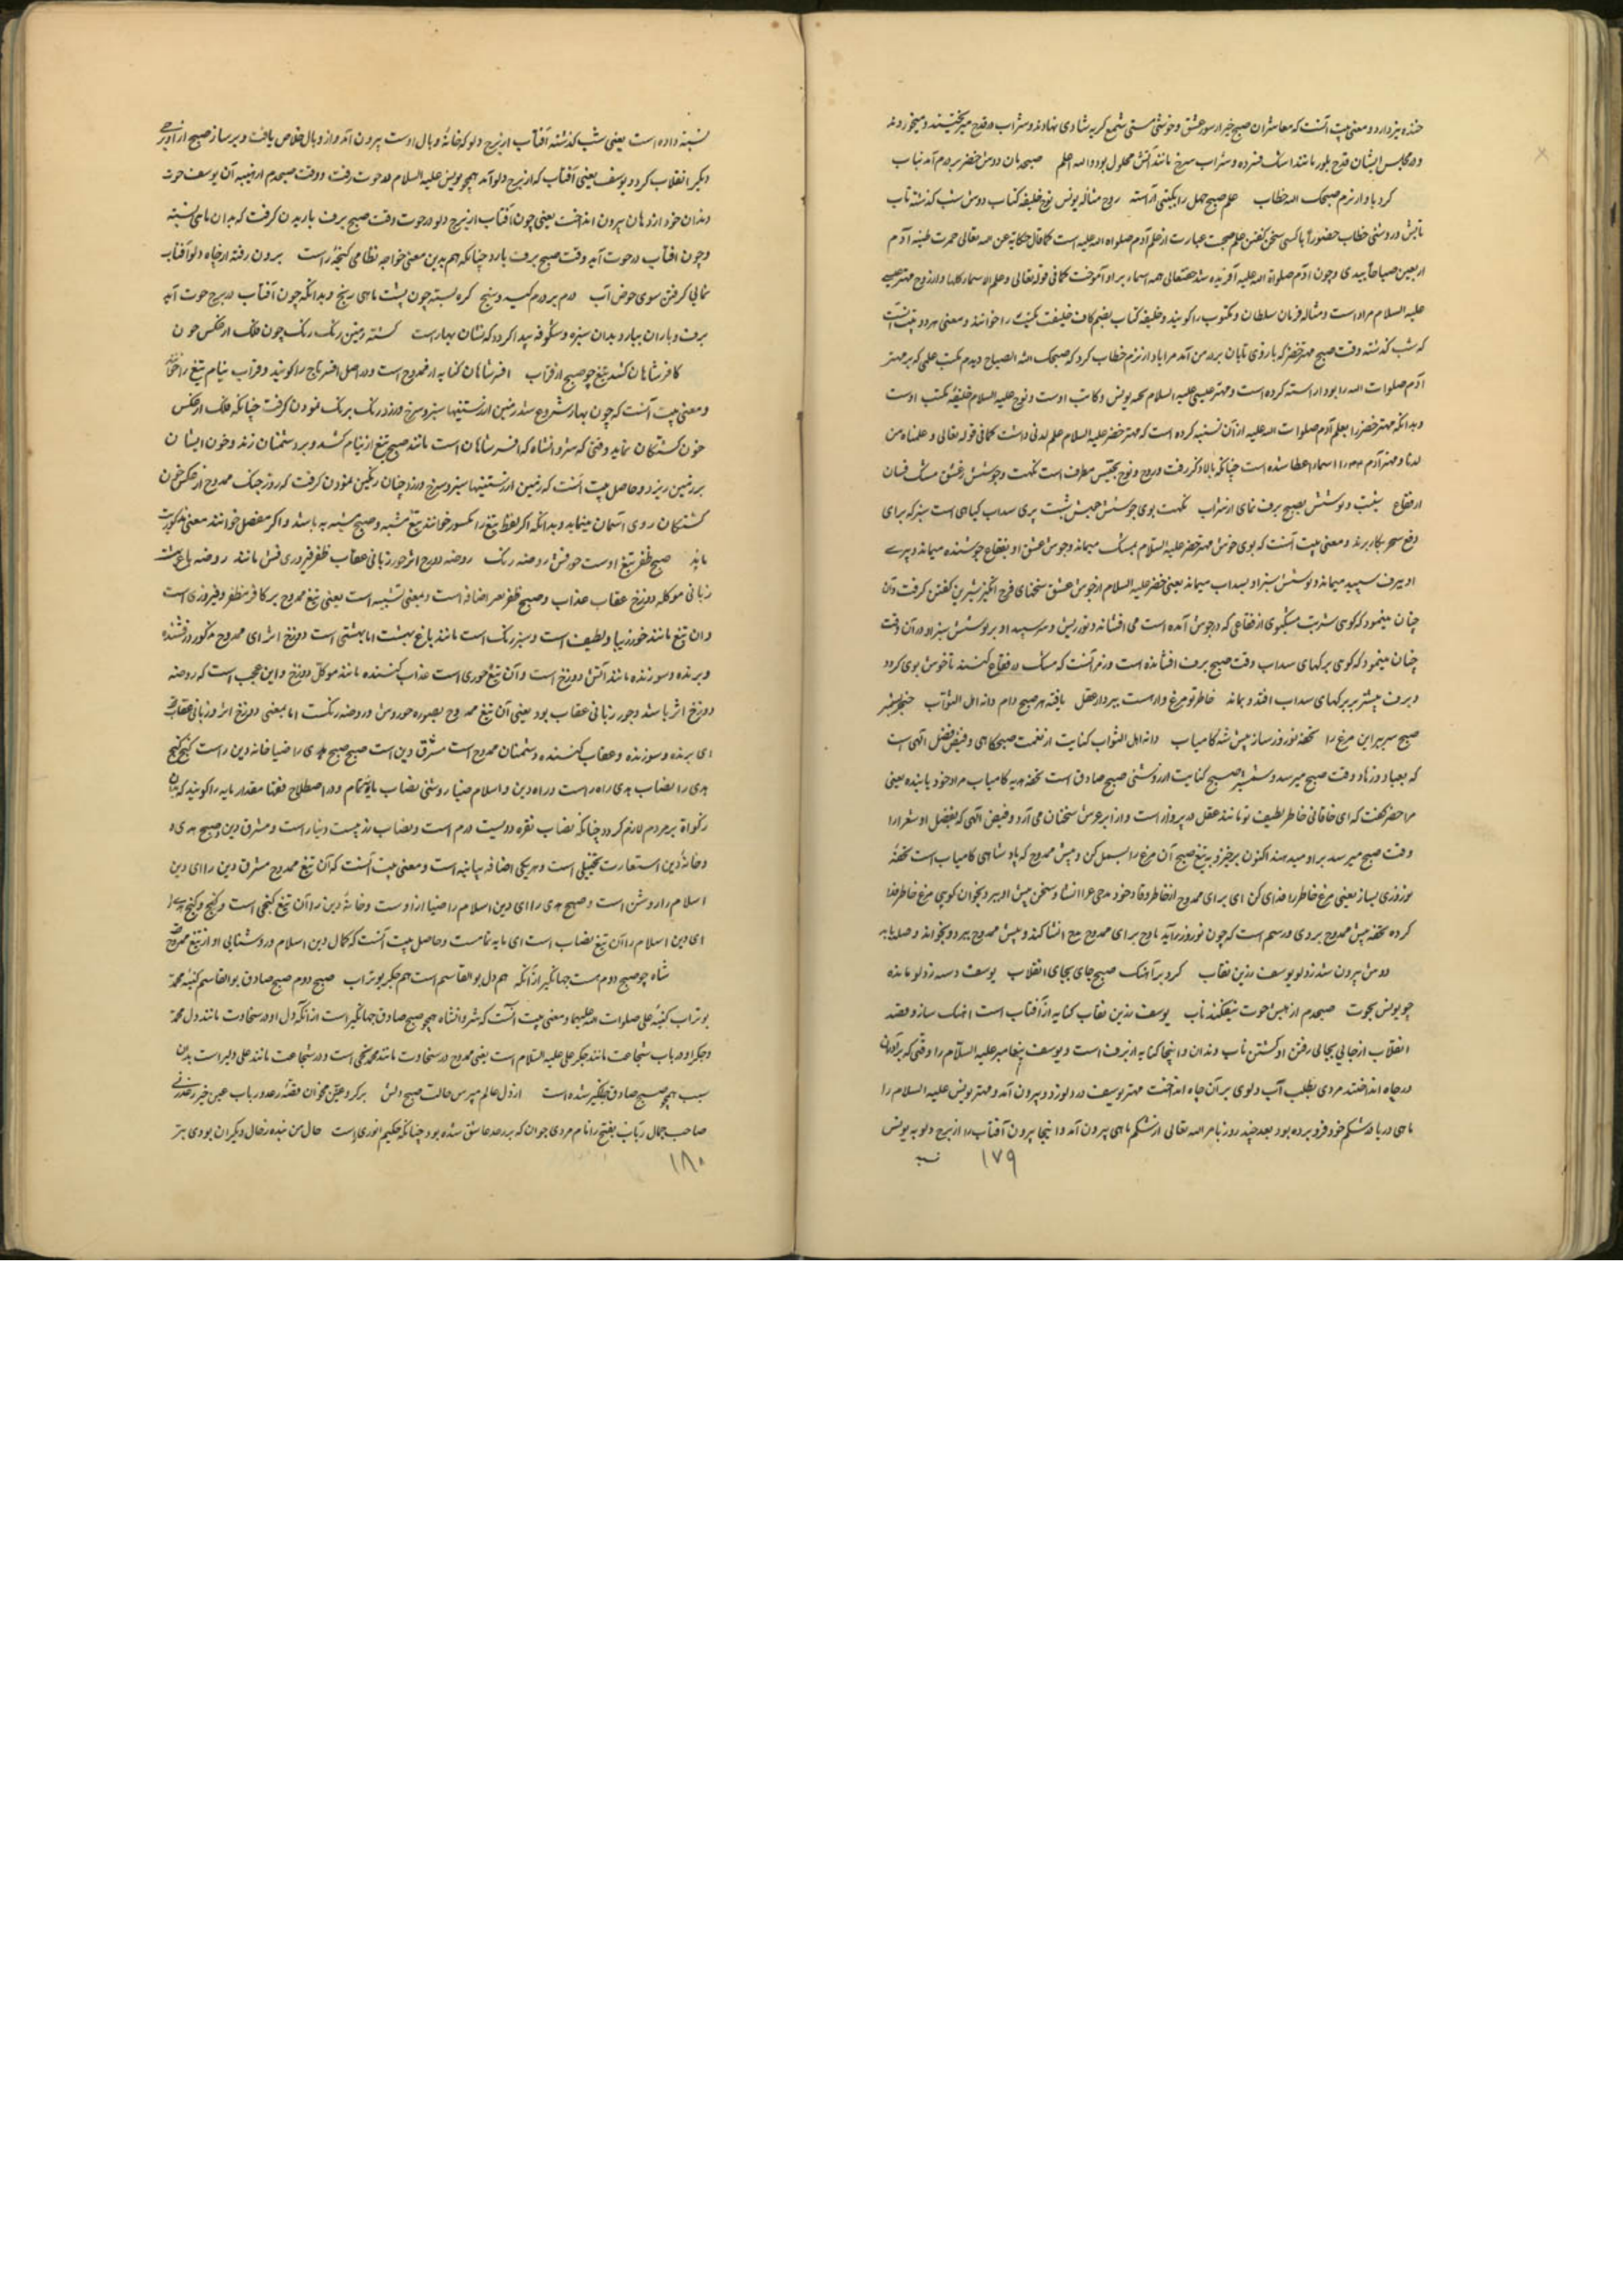 خنده نیز دارد و معنی بیت آنست که معاشران صبح خیز از سوز عشق و خوشی مستی شمع گریه شادی نهادند و شراب در قدح میریختند و میخوردند
و در مجلس ایشان قدح بلور مانند اشک فسرده و شراب سرخ مانند آتش محلول بود والله اعلم صبحدمان دوش خضر بر درم آمد بتاب
کرد باواز نرم صبحک الله خطاب علم صبح جمل را بیکنی آراسته روح مثاله یونس نوح خلیفه کتاب دوش شب گذشته تاب
تابش و روشنی خطاب حضوراً باکسی سخن گفتن علم صبحت عبارت از علم آدم صلواة الله علیه است کما قال حکایة عن الله تعالی خمرت طینة آدم
اربعین صباحاً بیدی و چون آدم صلواة الله علیه آفریده شد حقتعالی همه اسماء براو آموخت کما فی قوله تعالی و علم الاسماء کلها و از روح مهتر عیسی
علیه السلام مراد است و مثاله فرمان سلطان و مکتوب را گویند و خلیفه کتاب بضم کاف خلیفت مکتب را خوانند و معنی هر دو بیت آنست
که شب گذشته وقت صبح مهتر خضر که با روی تابان بر در من آمد مرا باواز نرم خطاب کرد که صبحک الله الصباح دیدم مکتب علمی که بر مهتر
آدم صلوات الله را بود آراسته کرده است و مهتر عیسی علیه السلام تخته یونس و کاتب اوست و نوح علیه السلام خلیفه مکتب اوست
و بدانکه مهتر خضر را بعلم آدم صلوات الله علیه از آن تشبیه کرده است که مهتر خضر علیه السلام علم لدنی داشت کما فی قوله تعالی و علمناه من
لدنا و مهتر آدم را اسماء اعطا شده است چنانکه بالا ذکر رفت و روح و نوح تجنیس مطرف است نکهت و جوشش ز عشق مشک فشان
از فقاع شیبت و پوشش بصبح برف نمای از سداب نکهت بوی جوشش جیش شیبت پیری سداب گیاهی است سبز که برای
دفع سحر بکار برند و معنی بیت آنست که بوی خوش مهتر خضر علیه السلام بمشک میماند و جوش عشق او بفقاع جوشنده میماند و پیری
او ببرف سپید میماند و پوشش سبز او بسداب میماند یعنی خضر علیه السلام از جوش عشق سخنهای فرح انگیز شیرین گفتن گرفت و آن
چنان مینمود که گوئی شربت مشکبوی از فقاعی که در جوش آمده است می افشاند و نور ریش و سر سپید او بر پوشش سبز او در آن وقت
چنان مینمود که گوئی برگهای سداب وقت صبح برف افشانده است و رمز آنست که مشک در فقاع کنند تا خوش بوی گردد
و برف بیشتر بر برگهای سداب افتد و بماند خاطر تو مرغ وار هست بپرواز عقل یافته هر صبح دام دانه اهل الثواب خنجر شمشیر
صبح سر ببر این مرغ را تحفه نوروز ساز پیش شه کامیاب دانه اهل الثواب کنایت از نعمت صبحگاهی و فیض فضل الهی است
که بعباد و زهاد وقت صبح میرسد و شمشیر صبح کنایت از روشنی صبح صادق است تحفه هدیه کامیاب مراد خود یابنده یعنی
مرا خضر گفت که ای خاقانی خاطر لطیف تو مانند عقل در پرواز است و از ابر عرش سخنان می آرد و فیض الهی که بفضل او شعرا را
وقت صبح میرسد بر او میدهند اکنون برخیز و به تیغ صبح آن مرغ را بسمل کن و پیش ممدوح که پادشاهی کامیاب است تحفهٔ
نوروزی بساز یعنی مرغ خاطر را فدای کن ای برای ممدوح از خاطر وقاد خود مدحی غرا انشا و سخن پیش او ببر و بخوان گویی مرغ خاطر فدا
کرده تحفه پیش ممدوح بردی و رسم است که چون نوروز برآید مادح برای ممدوح مدح انشا کند و پیش ممدوح ببرد و بخواند و صله یابد
دوش برون شد ز دلو یوسف زرین نقاب کرد بر آهنگ صبح جای بجای انقلاب یوسف رسته ز دلو مانده
چو یونس بحوت صبحدم از پیش حوت بیفکند ناب یوسف زرین نقاب کنایه از آفتاب است آهنگ ساز و قصد
انقلاب از جایی بجائی رفتن او گشتن ناب دندان و اینجا کنایه از برف است و یوسف پیغامبر علیه السلام را وقتی که برادران
در چاه انداختند مردی بطلب آب دلوی بر آن چاه انداخت مهتر یوسف در دلو زد و بیرون آمد و مهتر یونس علیه السلام را
ماهی دریا در شکم خود فرو برده بود بعد چند روز بامر الله تعالی از شکم ماهی بیرون آمد و اینجا بیرون آفتاب را از برج دلو به یونس
۱۷۹
تشبیه داده است یعنی شب گذشته آفتاب از برج دلو که خانهٔ وبال اوست بیرون آمد و از وبال خلاص یافت و بر ساز صبح از
دیگر انقلاب کرد و یوسف یعنی آفتاب که از برج دلو آمد همچو یونس علیه السلام در حوت رفت و وقت صبحدم از هیبت آن یوسف حوت
دندان خود از دهان بیرون انداخت یعنی چون آفتاب از برج دلو در حوت وقت صبح برف باریدن گرفت که بدان ماهی تشبیه
و چون آفتاب در حوت آید وقت صبح برف بارد چنانکه هم بدین معنی خواجه نظامی گنجه راست برون رفته از چاه دلو آفتاب
بماهی گرفتن سوی حوض آب درم بر درم کیسه و سنج گره بسته چون پشت ماهی رنج و بدانکه چون آفتاب در برج حوت آید
برف و باران ببارد و بدان سبزه و شکوفه پیدا گردد که نشان بهار است گشته زمین رنگ رنگ چون فلک از عکس خون
کافر شاهان کشد تیغ چو صبح از قراب افسر شاهان کنایه از ممدوح است و در اصل افسر تاج را گویند و قراب نیام تیغ را
و معنی بیت آنست که چون بهار شروع شد زمین از رستنیها سبز و سرخ و زرد رنگ برنگ نمودن گرفت چنانکه فلک از عکس
خون کشتگان نماید وقتی که شروانشاه که افسر شاهان است مانند صبح تیغ از نیام کشد و بر دشمنان زند و خون ایشان
بر زمین ریزد و حاصل بیت آنست که زمین از رستنیها سبز و سرخ و زرد چنان رنگین نمودن گرفت که روز جنگ ممدوح از عکس خون
کشتگان روی آسمان مینماید و بدانکه اگر لفظ تیغ را مکسور خوانند تیغ مشبه و صبح مشبه به باشد و اگر مفصل خوانند معنی مذکورست
باید صبح ظفر تیغ اوست حورفش روضه رنگ روضه دوزخ اثر حور زبانی عقاب ظفر فیروزی فش مانند روضه باغ بهشت
زبانی موکله دوزخ عقاب عذاب و صبح ظفر اضافه است و بمعنی تشبیه است یعنی تیغ ممدوح بر کافر مظفر و فیروزی است
و آن تیغ مانند حور زیبا و لطیف است و سبز رنگ است مانند باغ بهشت اما بهشتی است دوزخ اثر ای ممدوح مذکور درفشنده
و برنده و سوزنده مانند آتش دوزخ است و آن تیغ حوری است عذاب کننده مانند موکل دوزخ و این عجب است که روضه
دوزخ اثر باشد و حور زبانی عقاب بود یعنی آن تیغ ممدوح بصوره حوروش و روضه رنگست اما بمعنی دوزخ اثر و زبانی عقاب
ای برنده و سوزنده و عقاب کننده دشمنان ممدوح است مشرق دین است صبح صبح هدی را ضیا خانه دین راست گنج گنج
هدی را نصاب هدی راه راست و راه دین و اسلام ضیا روشنی نصاب مایه تمام و در اصطلاح فقها مقدار مایه را گویند که بدان
زکواة بر مردم لازم گردد چنانکه نصاب نقره دویست درم است و نصاب زر بیست دینار است و مشرق دین و صبح هدی و
و خانهٔ دین استعارت تخییلی است و هر یکی اضافه بیانیه است و معنی بیت آنست که آن تیغ ممدوح مشرق دین را ای دین
اسلام را روشن است و صبح هدی را ای دین اسلام را ضیا از اوست و خانهٔ دین را آن تیغ گنجی است و گنج هدی را
ای دین اسلام را آن تیغ نصاب است ای مایه تمامست و حاصل بیت آنست که کمال دین اسلام و روشنایی او از تیغ ممدوح
شاه چو صبح دوم هست جهانگیر از آنکه هم دل بوالقاسم است هم جگر بوتراب صبح دوم صبح صادق بوالقاسم کنیه محمد
بوتراب کنیه علی صلوات الله علیهما و معنی بیت آنست که شروانشاه همچو صبح صادق جهانگیر است از آنکه دل او در سخاوت مانند دل محمد
و جگر او در باب شجاعت مانند جگر علی علیه السلام است یعنی ممدوح در سخاوت مانند محمد سخی است و در شجاعت مانند علی دلیر است بدین
سبب همچو صبح صادق جهانگیر شده است از دل عالم مپرس حالت صبح دلش بر کرد عنین مخوان قصهٔ رعد و رباب عنین
صاحب جمال رباب بفتح را نام مردی جوان که بر رعد عاشق شده بود چنانکه حکیم انوری راست حال من بنده ز حال دیگران بودی بتر
۱۸۰